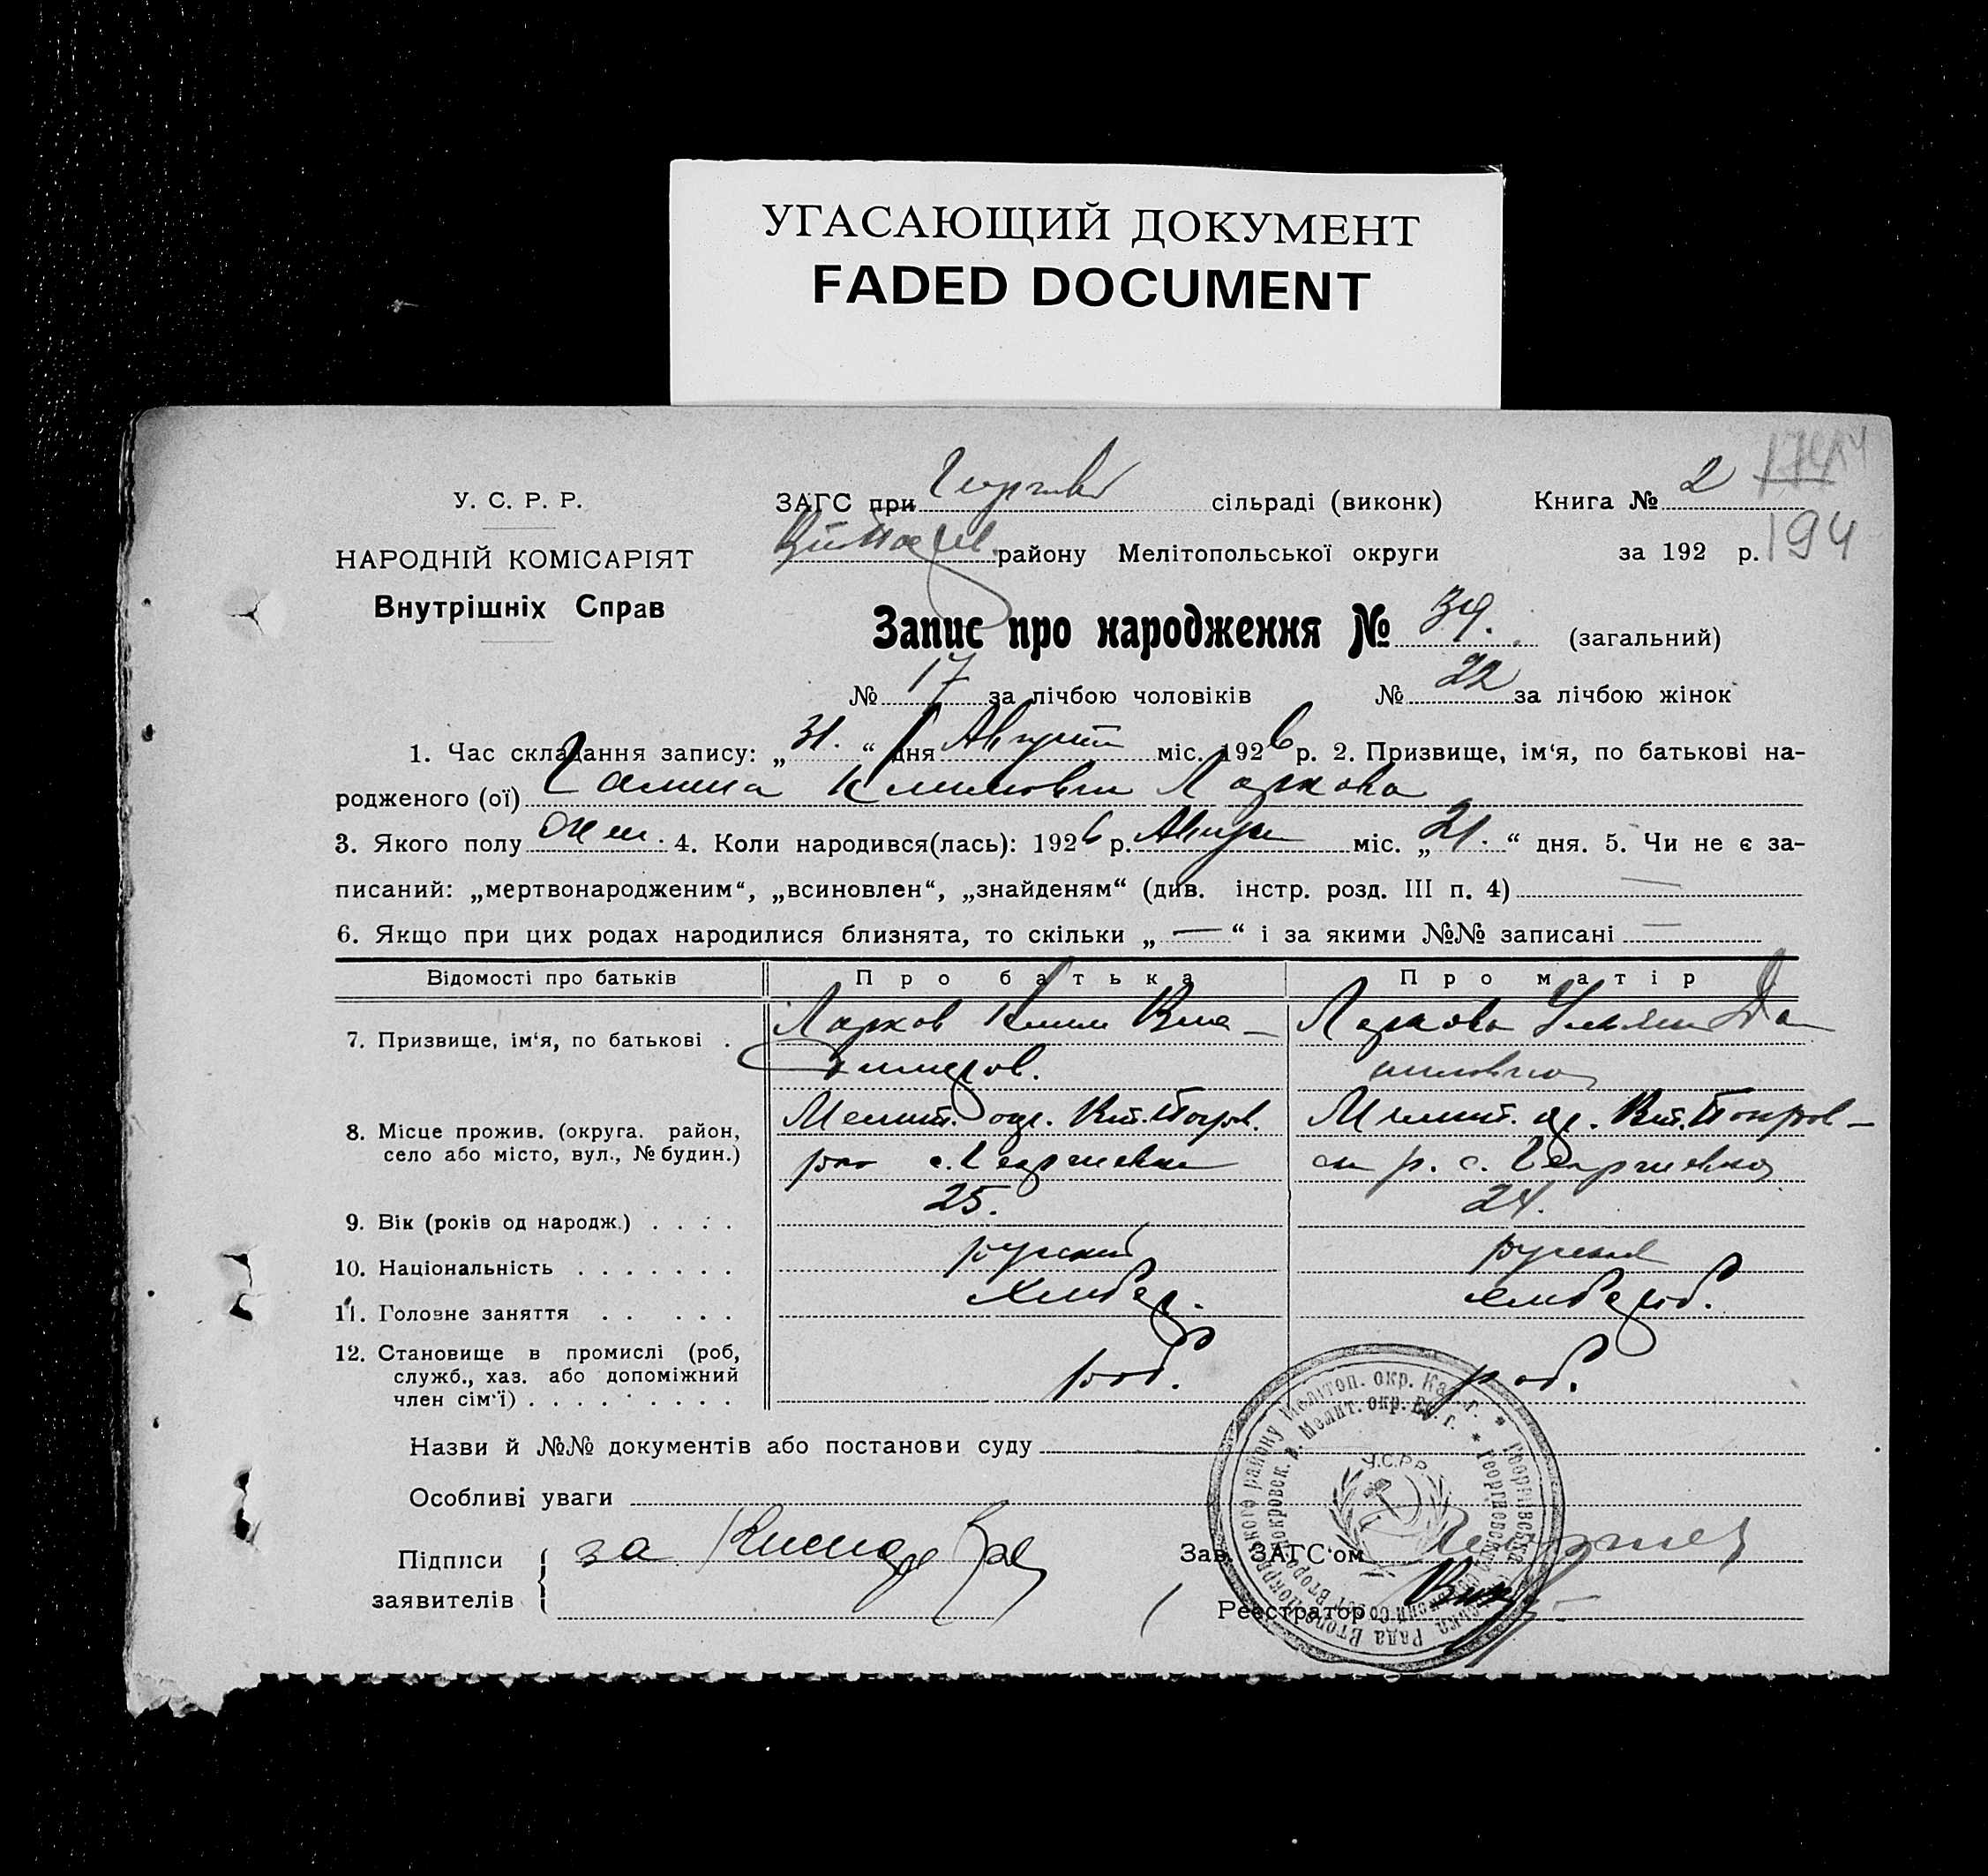 УГАСАЮЩИЙ ДОКУМЕНТ
FADED DOCUMENT
У. С. Р. Р.
НАРОДНІЙ КОМІСАРІЯТ
Внутрішніх Справ
ЗАГС при сільраді (виконк) Книга № 2
району Мелітопольської округи за 192 р. 194
Запис про народження № 39. (загальний)
№ 17 за лічбою чоловіків № 22 за лічбою жінок
1. Час складання запису: „ 31. “ дня Август міс. 1926 р. 2. Призвище, ім‘я, по батькові на-
родженого (ої) Галина Климовна Ларкова
3. Якого полу жен. 4. Коли народився(лась): 1926 р. Август міс. „ 21. “ дня. 5. Чи не є за-
писаний: „мертвонародженим“, „всиновлен“, „знайденям“ (див. інстр. розд. III п. 4) —
6. Якщо при цих родах народилися близнята, то скільки „ — “ і за якими №№ записані —
Відомості про батьків Про батька Про матір
7. Призвище, ім‘я, по батькові . Ларков Клим Вла- Ларкова Ульяна Да-
димиров. ниловна
8. Місце прожив. (округа. район, Мелит. окр. Вт. Покров. Мелит. окр. Вт. Покров-
село або місто, вул., № будин.) с. Георгиевка р. с. Георгиевка
9. Вік (років од народж.) . . . . 25. 24.
10. Національність . . . . . . . русский русская
11. Головне заняття . . . . . Хлибор. хлибороб.
12. Становище в промислі (роб,
служб., хаз. або допоміжний роб. роб.
член сім‘ї) . . . . . . . .
Назви й №№ документів або постанови суду
Особливі уваги
Підписи за Зав. ЗАГС‘ом
заявителів Реєстратор
У.С.Р.Р.